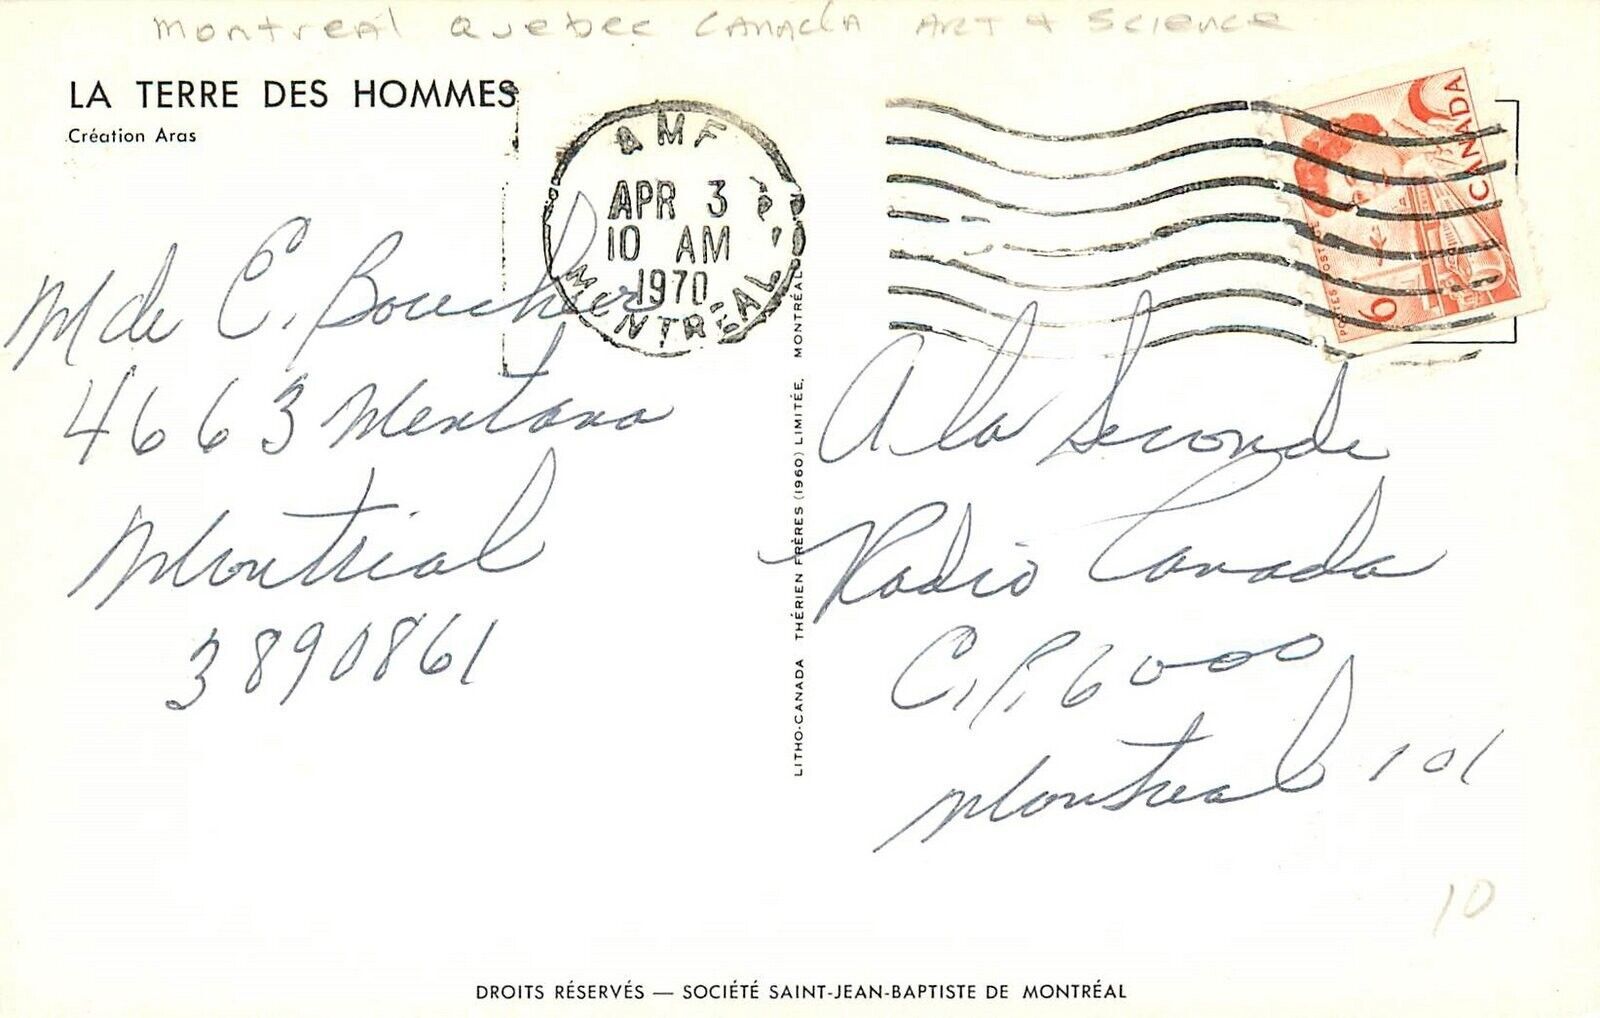 Montreal Quebec Canada Art & Science
LA TERRE DES HOMMES
Création Aras
AMF
APR 3
10 AM
1970
MONTRÉAL
CANADA
POSTES POSTAGE
6
Mde C. Boucher
4663 Mentana
Montreal
3890861
LITHO-CANADA THÉRIEN FRÈRES (1960) LIMITÉE, MONTRÉAL
A la Seconde
Radio Canada
C.P. 6000
Montreal 101
10
DROITS RÉSERVÉS — SOCIÉTÉ SAINT-JEAN-BAPTISTE DE MONTRÉAL